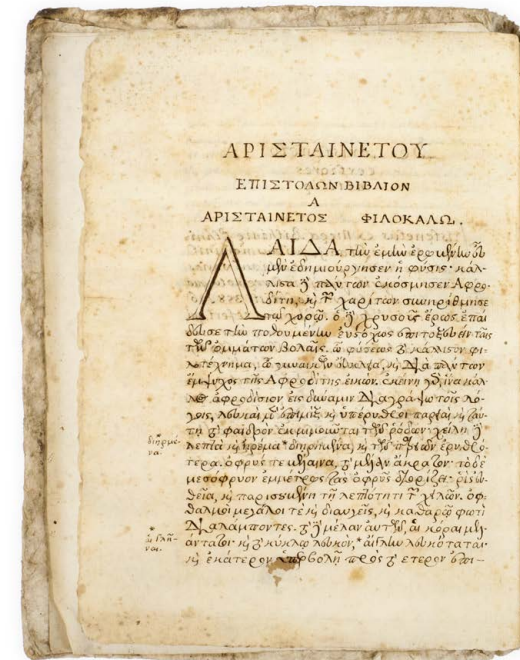 ΑΡΙΣΤΑΙΝΕΤΟΥ
ΕΠΙΣΤΟΛΩΝ ΒΙΒΛΙΟΝ
Α
ΑΡΙΣΤΑΙΝΕΤΟΣ ΦΙΛΟΚΑΛΩ.
ΛΑΙΔΑ, τὴν ἐμὴν ἐρωμένην εὖ
μὲν ἐδημιούργησεν ἡ φύσις· κάλ-
λιστα δὲ πάντων ἐκόσμησεν Ἀφρο-
δίτη, καὶ τῶν χαρίτων συνηρίθμησε
τῷ χορῷ. ὁ δὲ χρυσοῦς ἔρως ἐπαί
δευσε τὴν ποθουμένην εὐστόχως ἐπιτοξεύειν ταῖς
τῶν ὀμμάτων βολαῖς. ὦ φύσεως τὸ κάλλιστον φι-
λοτέχνημα, ὦ γυναικῶν εὔκλεια, καὶ διὰ πάντων
ἔμψυχος τῆς Ἀφροδίτης εἰκών. ἐκείνη γὰρ ἵνα κάλ-
λος ἀφροδίσιον εἰς δύναμιν διαγράψω τοῖς λό-
γοις, λευκαὶ μὲν ἐπιμὶξ καὶ ὑπέρυθροι παρειαὶ, καὶ ταύ-
τῃ τὸ φαιδρὸν ἐκμιμοῦνται τῶν ῥόδων· χείλη δὲ
λεπτὰ καὶ ἠρέμα * διῃρημένα, καὶ τῶν παρειῶν ἐρυθρό-
τερα. ὀφρύς τε μέλαινα, τὸ μέλαν ἄκρατον. τὸ δὲ
μεσόφρυον ἐμμέτρως τὰς ὀφρῦς διορίζει. ῥὶς εὐ-
θεῖα, καὶ παρισουμένη τῇ λεπτότητι τῶν χειλῶν. ὀφ-
θαλμοὶ μεγάλοι τε καὶ διαυγεῖς, καὶ καθαρῷ φωτὶ
διαλάμποντες. τὸ δὲ μέλαν αὐτῶν, αἱ κόραι μελ-
άνταται· καὶ τὸ κύκλῳ λευκὸν, *
λευκόταται·
καὶ ἑκάτερον ὑπερβολῇ πρὸς τὸ ἕτερον ἐπι-
διῃρμέ-
να·
*
αἱ γλῆ-
ναι.